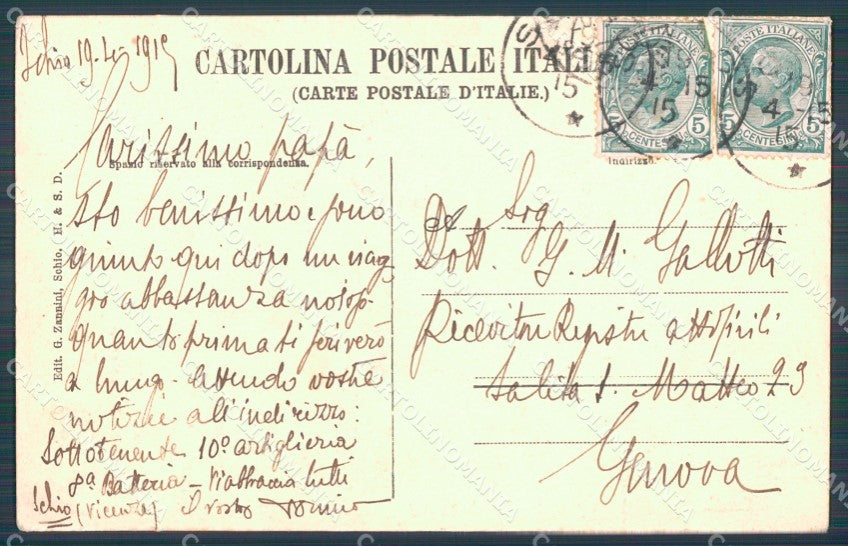 Schio 19-4-1915
CARTOLINA POSTALE ITALI
(CARTE POSTALE D'ITALIE.)
POSTE ITALIANE
CENTESIMI 5
POSTE ITALIANE
5 CENTESIMI 5
Spazio riservato alla corrispondenza.
Indirizzo.
Edit. G. Zannini, Schio, H. & S. D.
Carissimo papà,
Sto benissimo e sono
giunto qui dopo un viag
gio abbastanza noioso.
quanto prima ti scriverò
a lungo. Attendo vostre
notizie all'indirizzo:
Sottotenente 10º artiglieria
8ª Batteria - Vi abbraccia tutti
Schio (Vicenza) Il vostro
Sig
Dott. G. M. Gallotti
Ricevitore Registro atti civili
Salita S. Matteo 29
Genova
CARTOLINOMANIA